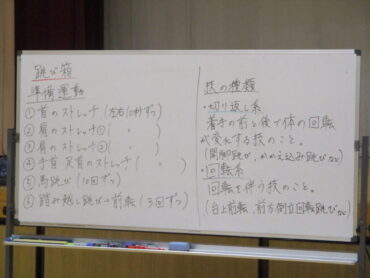 跳び箱
準備運動
①首のストレッチ(左右10秒ずつ)
②肩のストレッチ①( 〃 )
③肩のストレッチ②( 〃 )
④手首足首のストレッチ( 〃 )
⑤馬跳び(10回ずつ)
⑥踏み越し跳び→前転(3回ずつ)
技の種類
・切り返し系
着手の前と後で体の回転
が変化する技のこと。
(開脚跳び、かかえ込み跳びなど)
・回転系
回転を伴う技のこと。
(台上前転、前方倒立回転跳びなど)